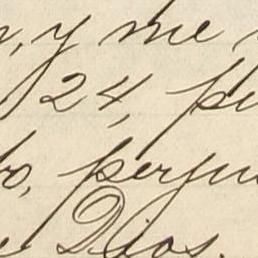 , y me
24, pe
o, perju
e Dios.